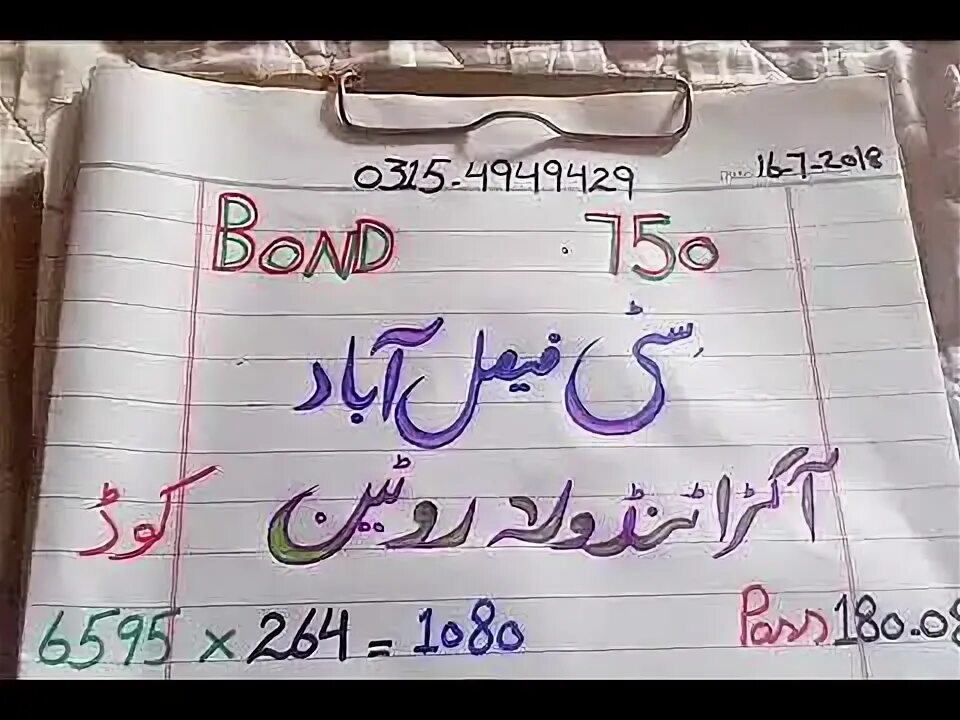 0315-4949429
16-7-2018
BOND 750
سٹی فیصل آباد
آکڑا ٹنڈولہ روٹین
کوڈ
6595 × 264 = 1080 Pass 180.08